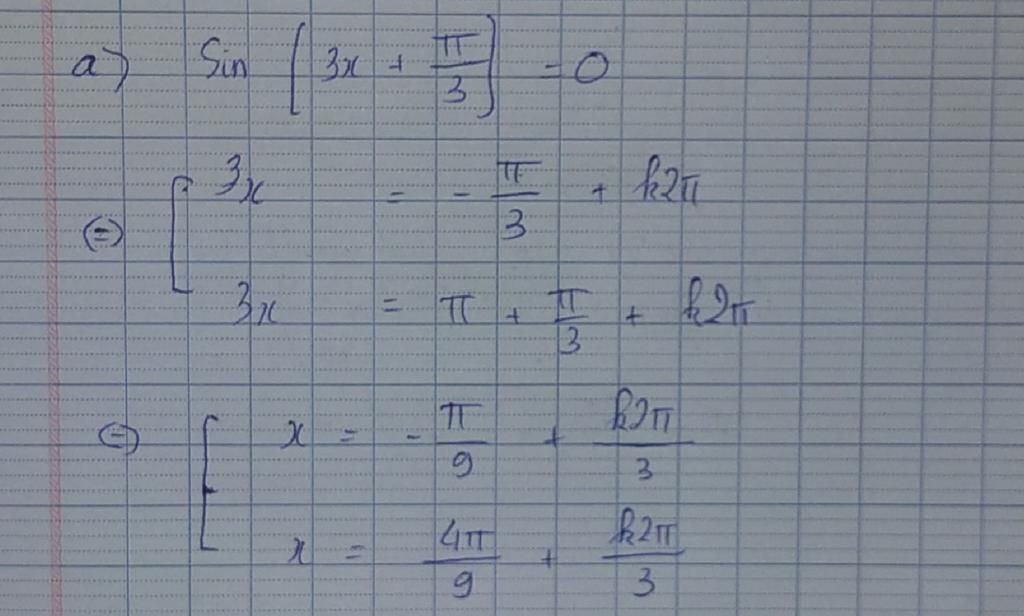 a) Sin [3x + π/3] = 0
⇔ [ 3x = - π/3 + k2π
3x = π + π/3 + k2π
⇔ [ x = - π/9 + k2π/3
x = 4π/9 + k2π/3